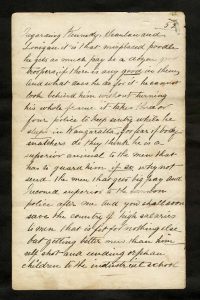 5
Regarding Kennedy Scanlan and
Lonigan it is that misplaced poodle
he gets as much pay as a dozen good
troopers if there is any good in them,
and what does he do for it he cannot
look behind him without turning
his whole frame it takes three or
four police to keep sentry while he
sleeps in Wangaratta, for fear of body
snatchers do they think he is a
superior animal to the men that
has to guard him if so why not
send the men that gets big pay and
reconed superior to the common
police after me and you shall soon
save the country of high salaries
to men that is fit for nothing else
but getting better men than him
self shot and sending orphan
children to the industrial school